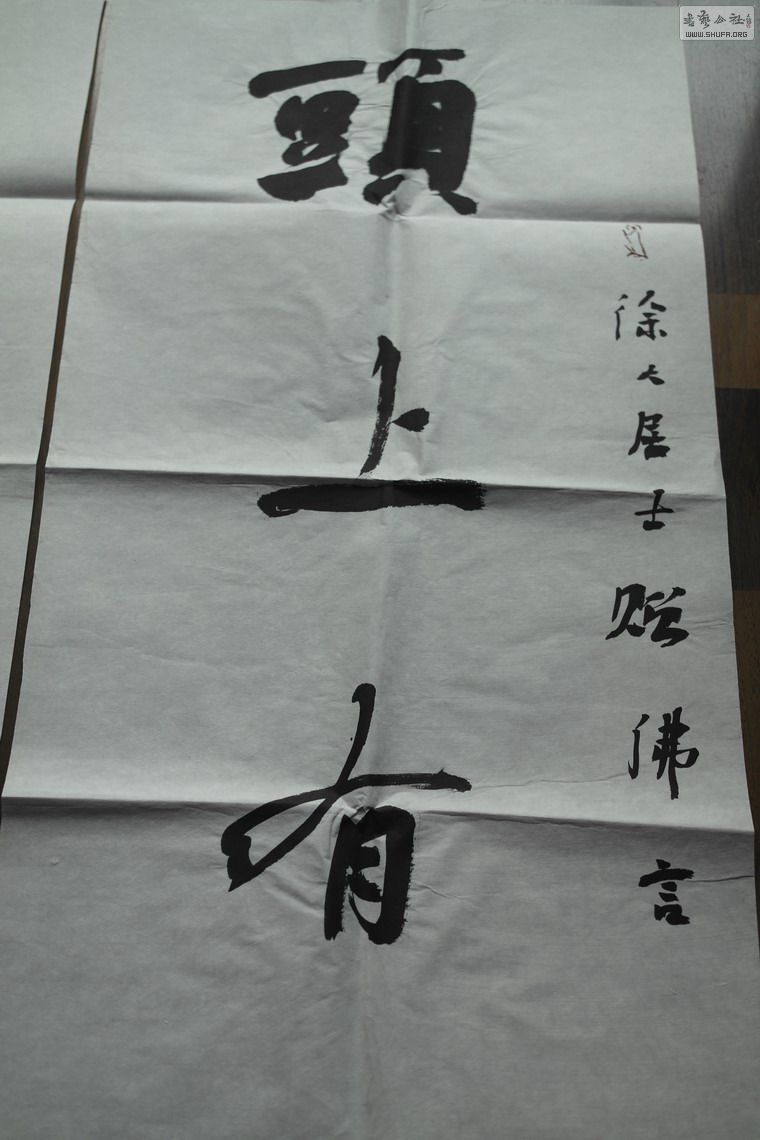 徐大居士赐佛言
頭上有
書藝公社
WWW.SHUFA.ORG